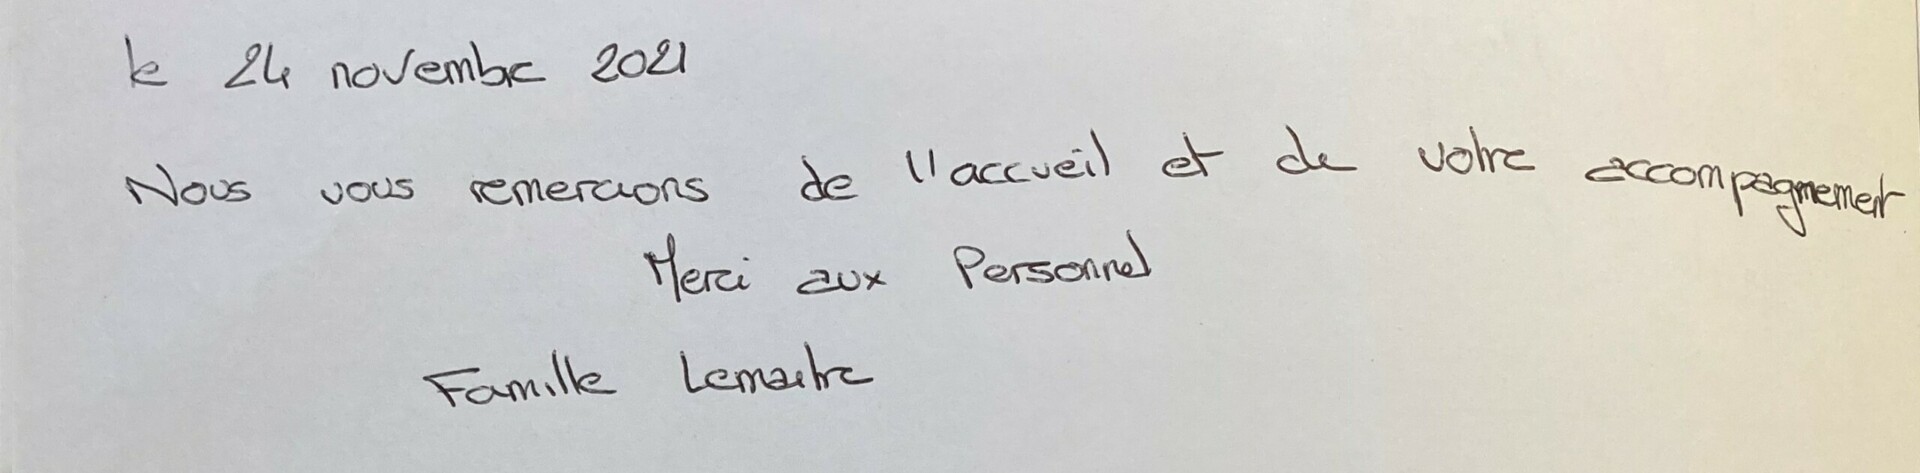 le 24 novembre 2021
Nous vous remercions de l'accueil et de votre accompagnement
Merci aux Personnel
Famille Lemaitre